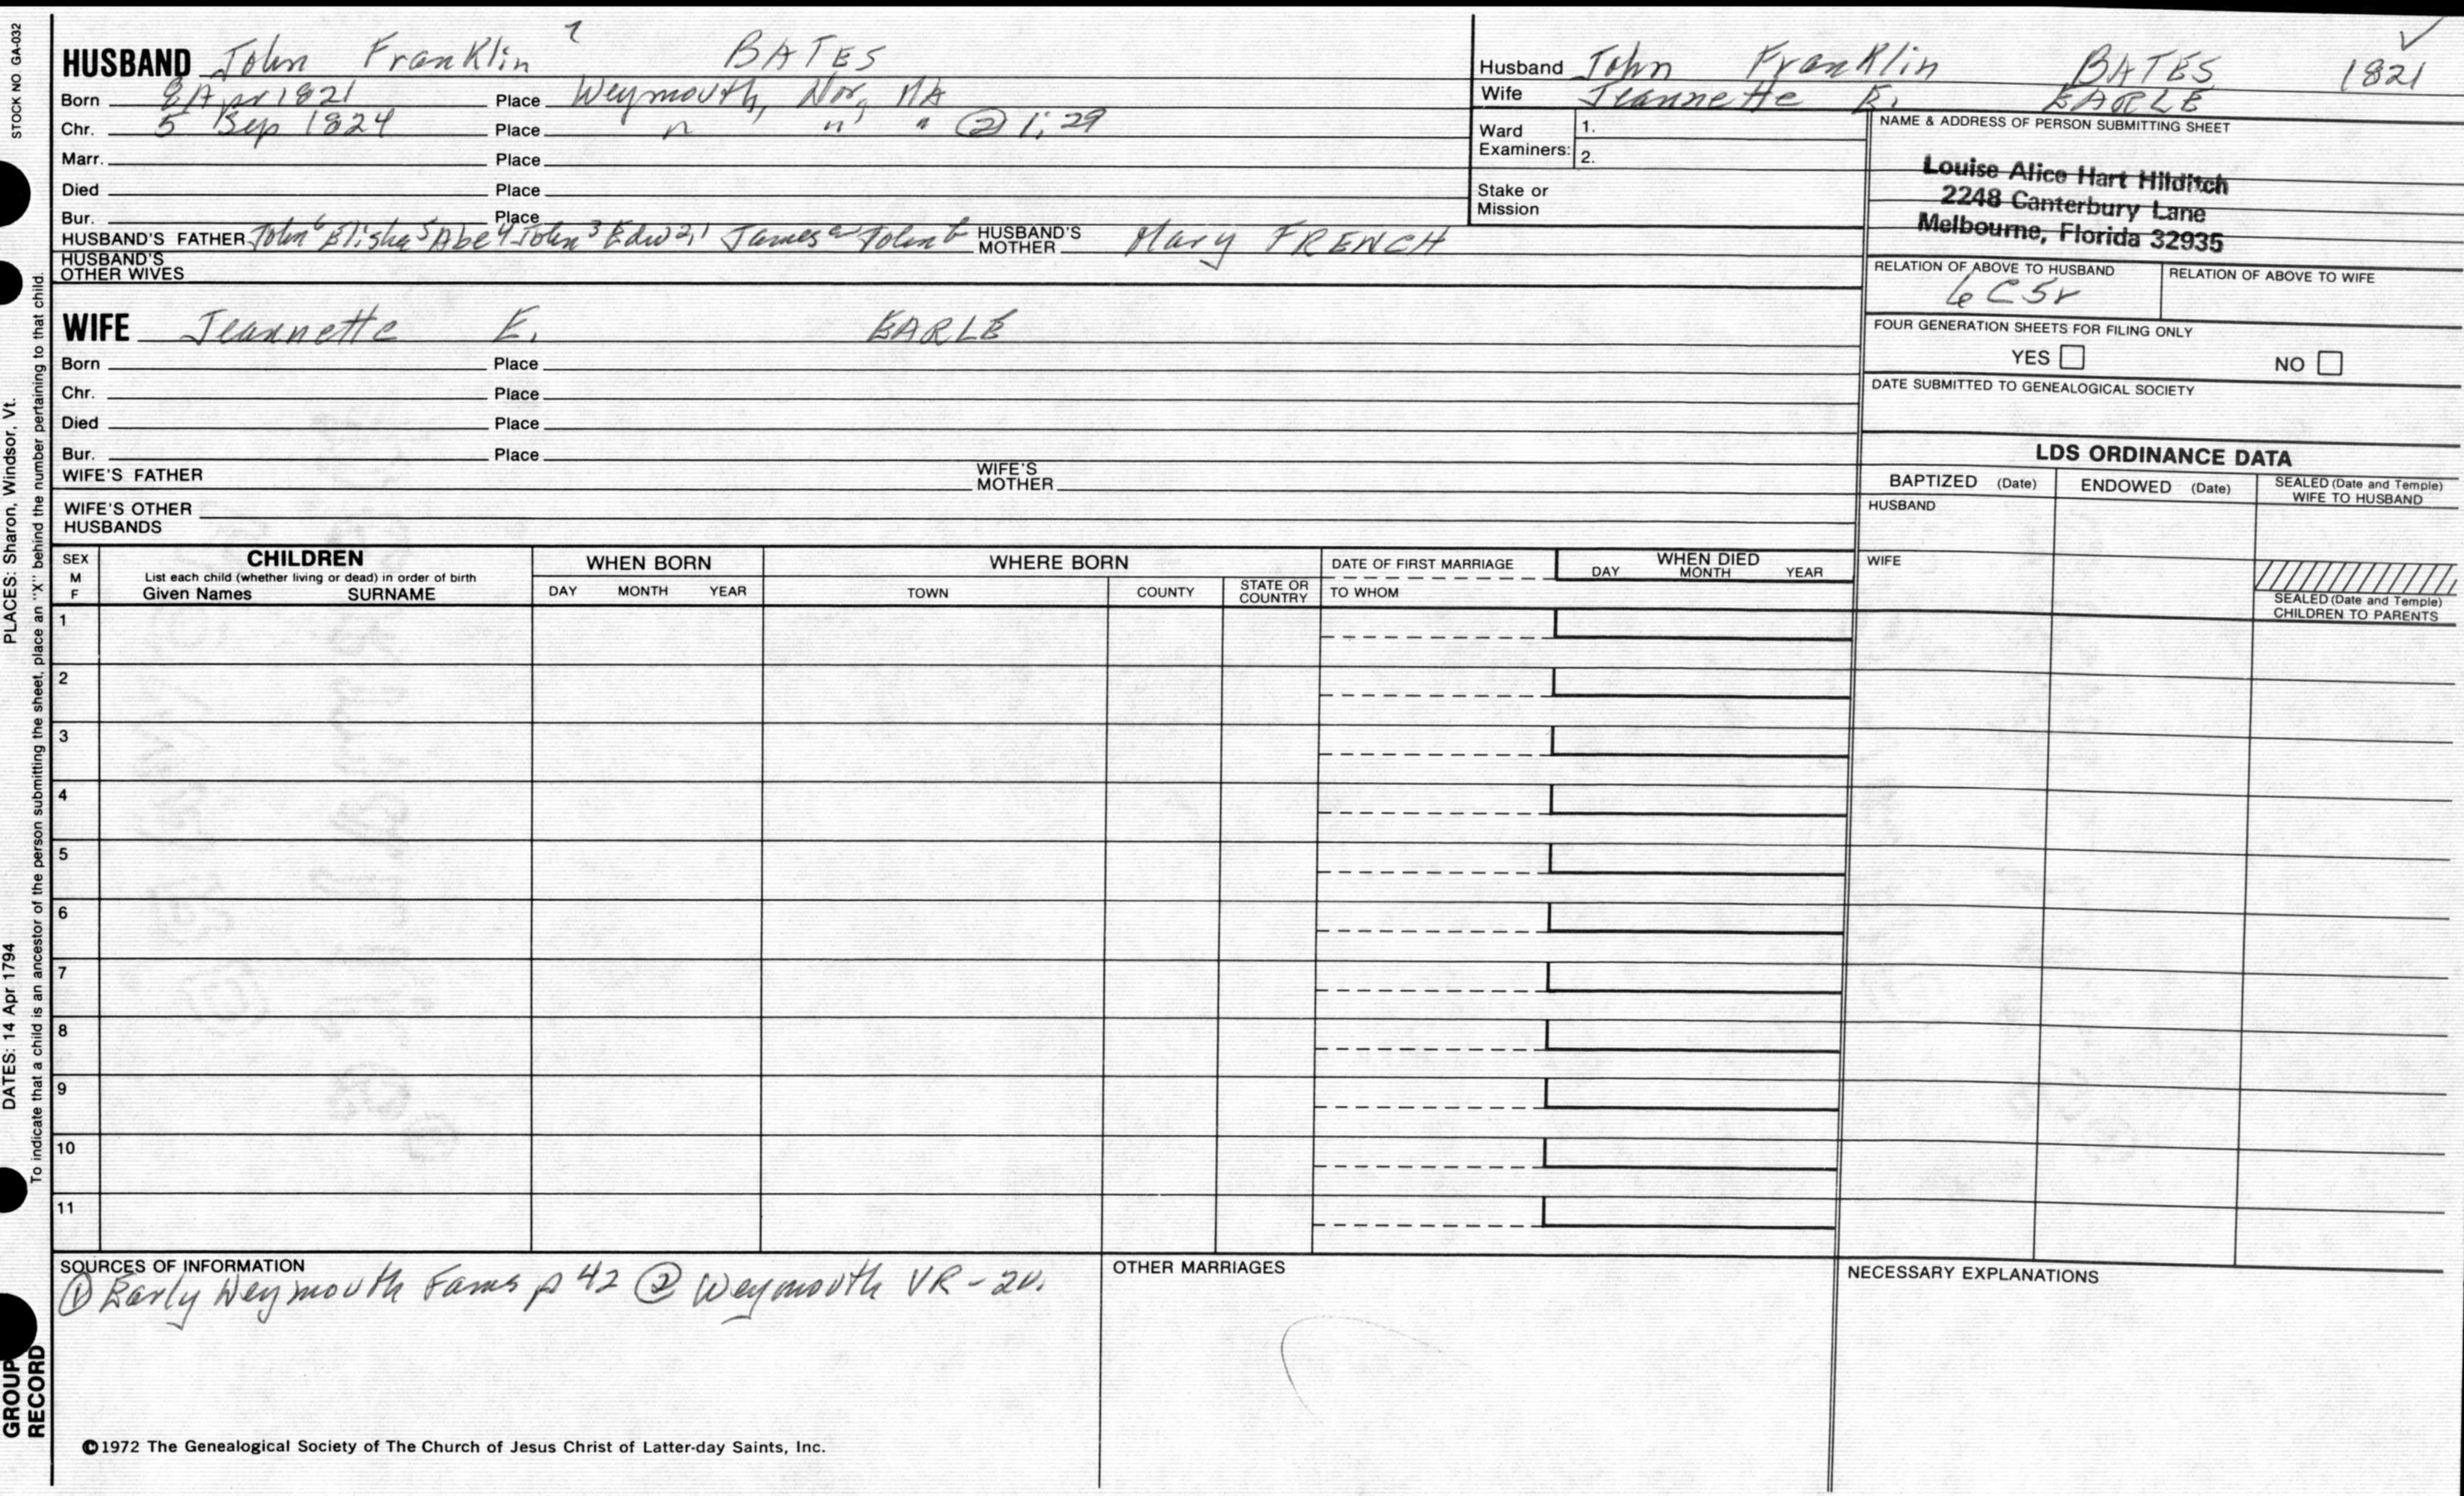 STOCK NO GA-032
PLACES: Sharon, Windsor, Vt.
DATES: 14 Apr 1794
To indicate that a child is an ancestor of the person submitting the sheet, place an "X" behind the number pertaining to that child.
GROUP RECORD
HUSBAND John Franklin 7 BATES
Born 8 Apr 1821 Place Weymouth, Nor, MA
Chr. 5 Sep 1824 Place " " " @ 1;29
Marr. Place
Died Place
Bur. Place
HUSBAND'S FATHER John 6 Elisha 5 Abe 4 John 3 Edw 2,1 James a John b HUSBAND'S MOTHER Mary FRENCH
HUSBAND'S OTHER WIVES
WIFE Jeannette E. EARLE
Born Place
Chr. Place
Died Place
Bur. Place
WIFE'S FATHER WIFE'S MOTHER
WIFE'S OTHER HUSBANDS
Husband John Franklin BATES 1821
Wife Jeannette E. EARLE
Ward Examiners: 1.
2.
Stake or Mission
NAME & ADDRESS OF PERSON SUBMITTING SHEET
Louise Alice Hart Hilditch
2248 Canterbury Lane
Melbourne, Florida 32935
RELATION OF ABOVE TO HUSBAND RELATION OF ABOVE TO WIFE
6C5r
FOUR GENERATION SHEETS FOR FILING ONLY
YES NO
DATE SUBMITTED TO GENEALOGICAL SOCIETY
LDS ORDINANCE DATA
BAPTIZED (Date) ENDOWED (Date) SEALED (Date and Temple) WIFE TO HUSBAND
HUSBAND
WIFE
SEALED (Date and Temple) CHILDREN TO PARENTS
SEX M F CHILDREN WHEN BORN WHERE BORN DATE OF FIRST MARRIAGE WHEN DIED
List each child (whether living or dead) in order of birth
Given Names SURNAME DAY MONTH YEAR TOWN COUNTY STATE OR COUNTRY TO WHOM DAY MONTH YEAR
1
2
3
4
5
6
7
8
9
10
11
SOURCES OF INFORMATION OTHER MARRIAGES NECESSARY EXPLANATIONS
① Early Weymouth Fams p 42 ② Weymouth VR - 20.
©1972 The Genealogical Society of The Church of Jesus Christ of Latter-day Saints, Inc.